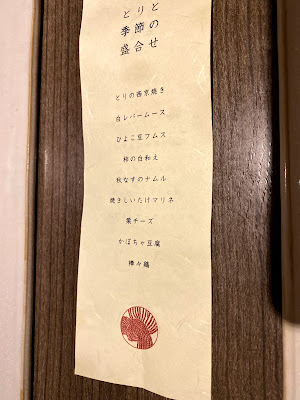 とりと
季節の
盛合せ
とりの西京焼き
白レバームース
ひよこ豆フムス
柿の白和え
秋なすのナムル
焼きしいたけマリネ
栗チーズ
かぼちゃ豆腐
棒々鶏